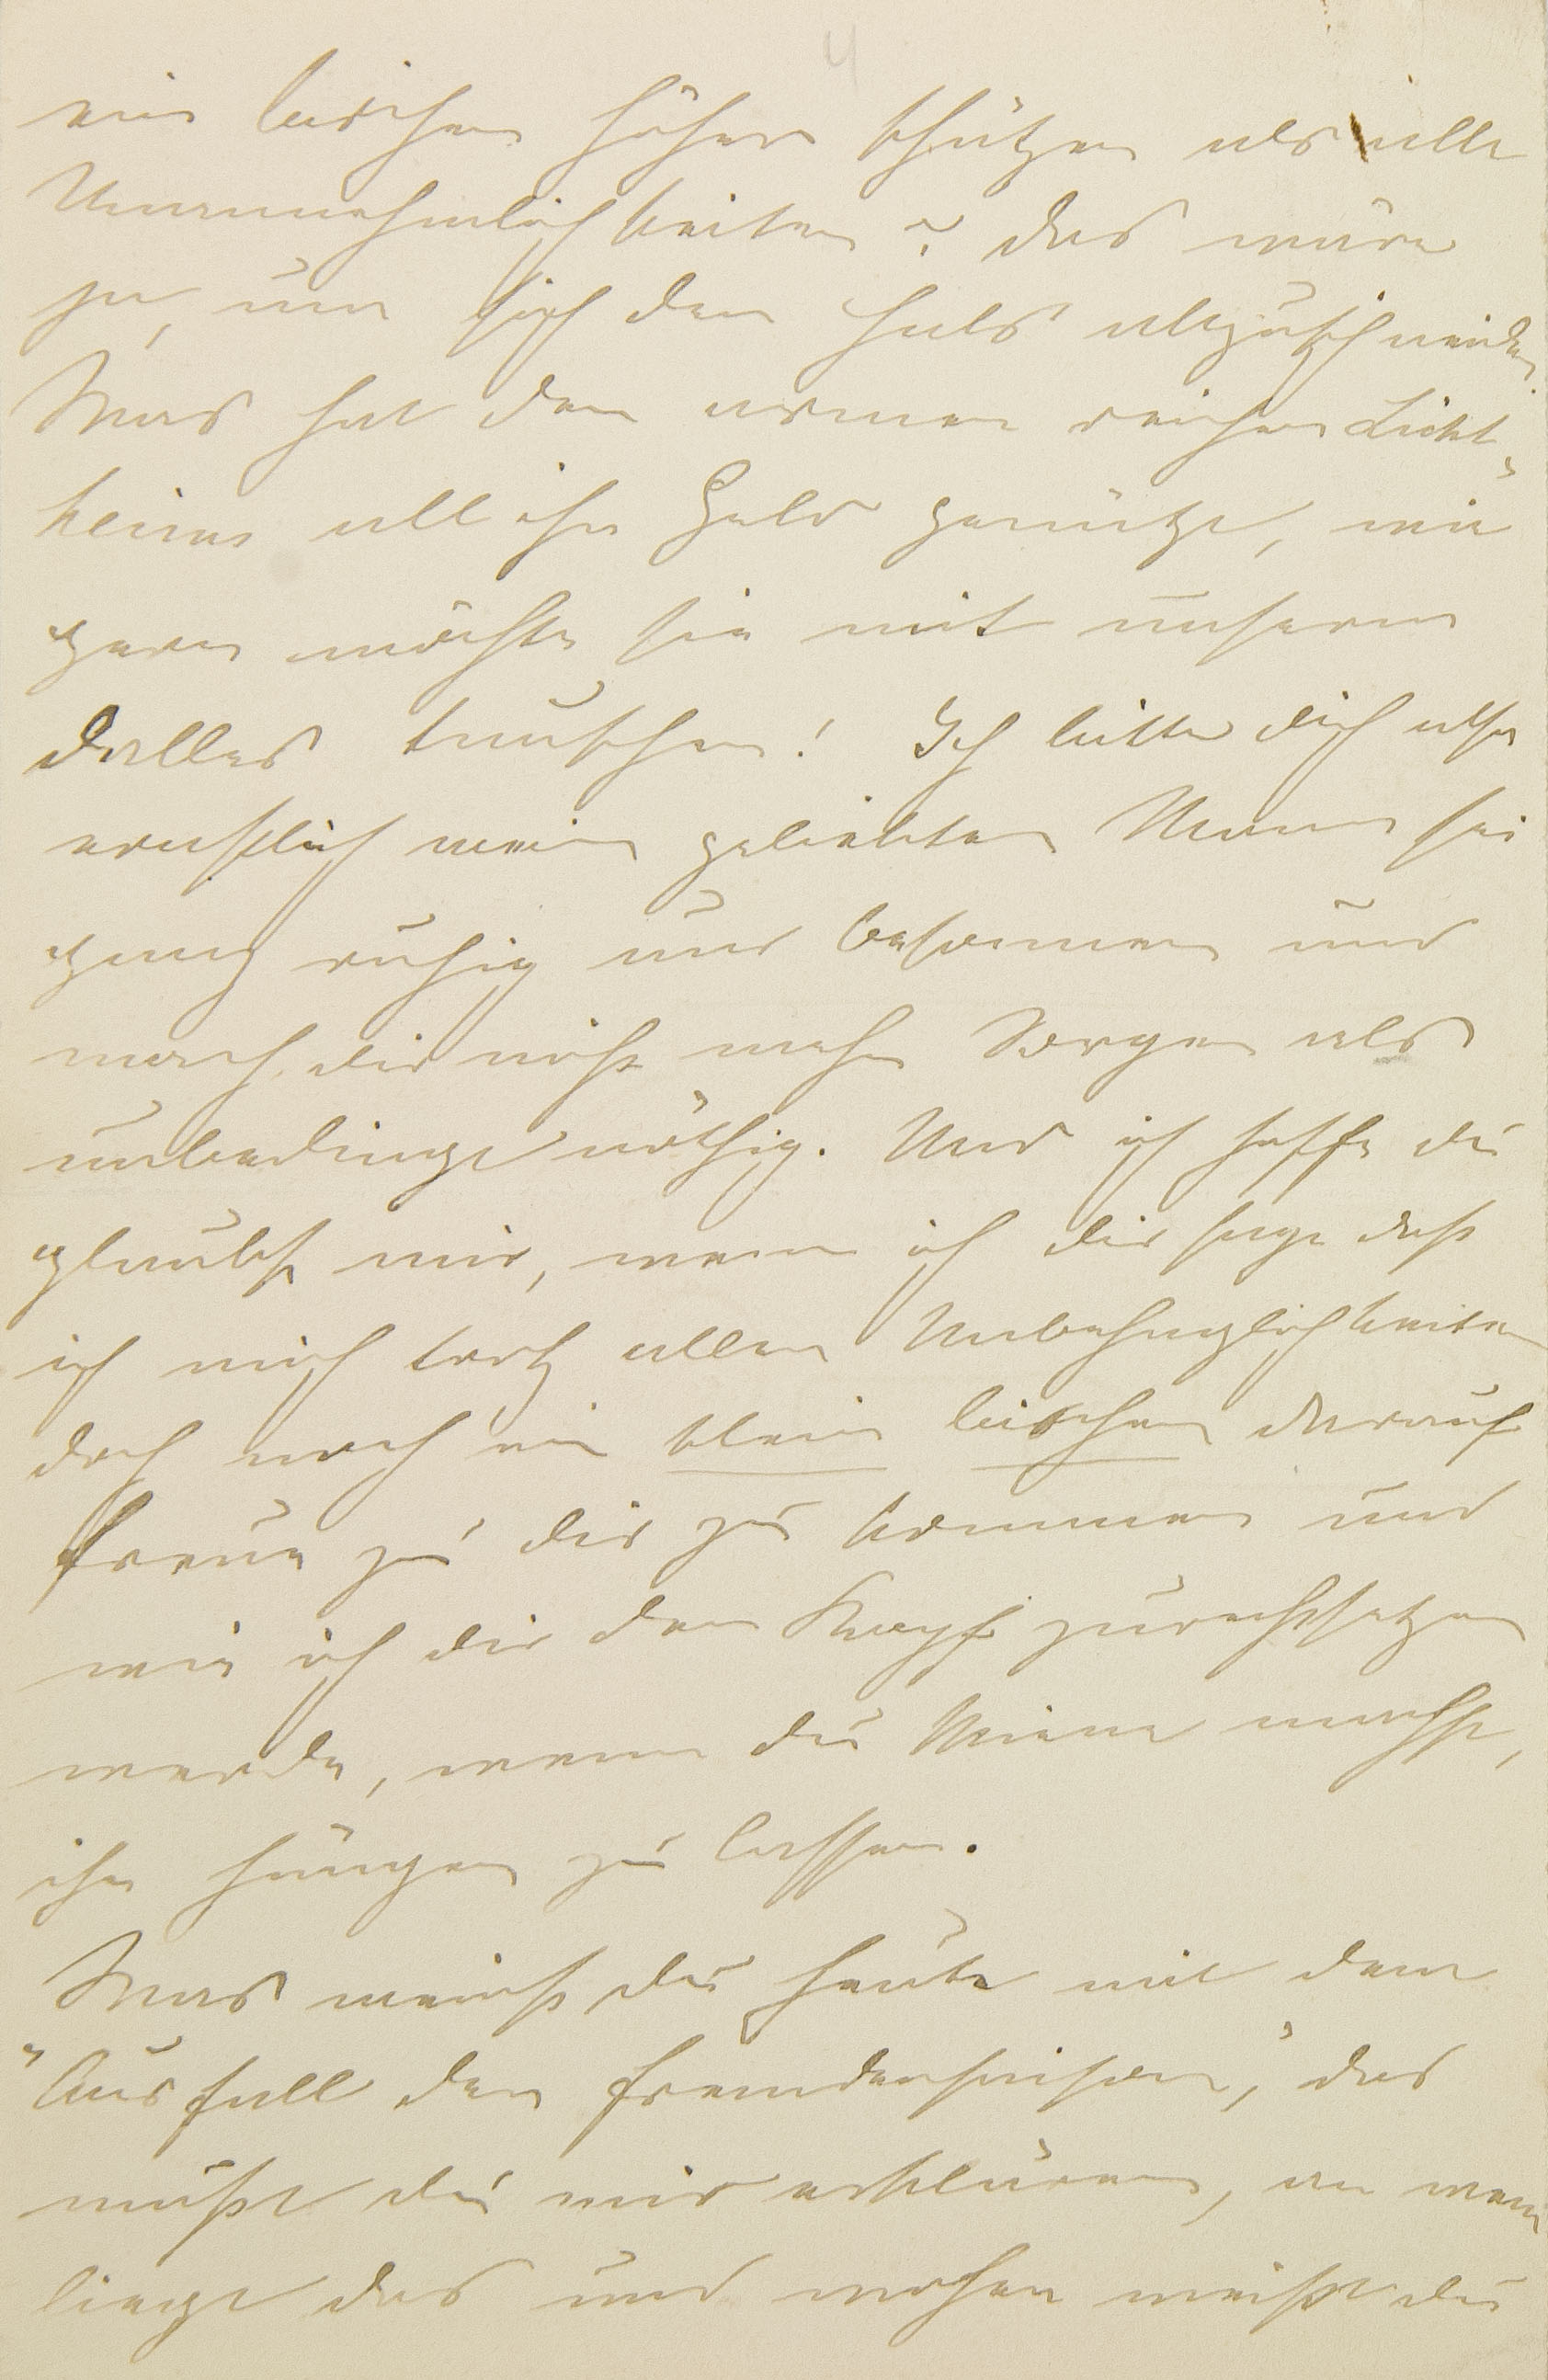 4
ein bischen höher schätzen als alle
Unannehmlichkeiten? das wäre
ja, um sich den Hals abzuschneiden.
Was hat den armen reichen Licht-
heims all ihr Geld genützt, wie
gern möchten sie mit unserm
Dalles tauschen! Ich bitte dich also
ernstlich mein geliebter Mann sei
ganz ruhig und besonnen und
mach dir nicht mehr Sorgen als
unbedingt nöthig. Und ich hoffe du
glaubst mir, wenn ich dir sage dass
ich mich trotz allen Unbehaglichkeiten
doch noch ein klein bischen darauf
freue zu dir zu kommen und
wie ich dir den Kopf zurechtsetzen
werde, wenn du Miene machst,
ihn hängen zu lassen.
Was meinst du heute mit dem
"Ausfall der Fremdensaison," das
mußt du mir erklären, an wem
liegt das und woher weißt du